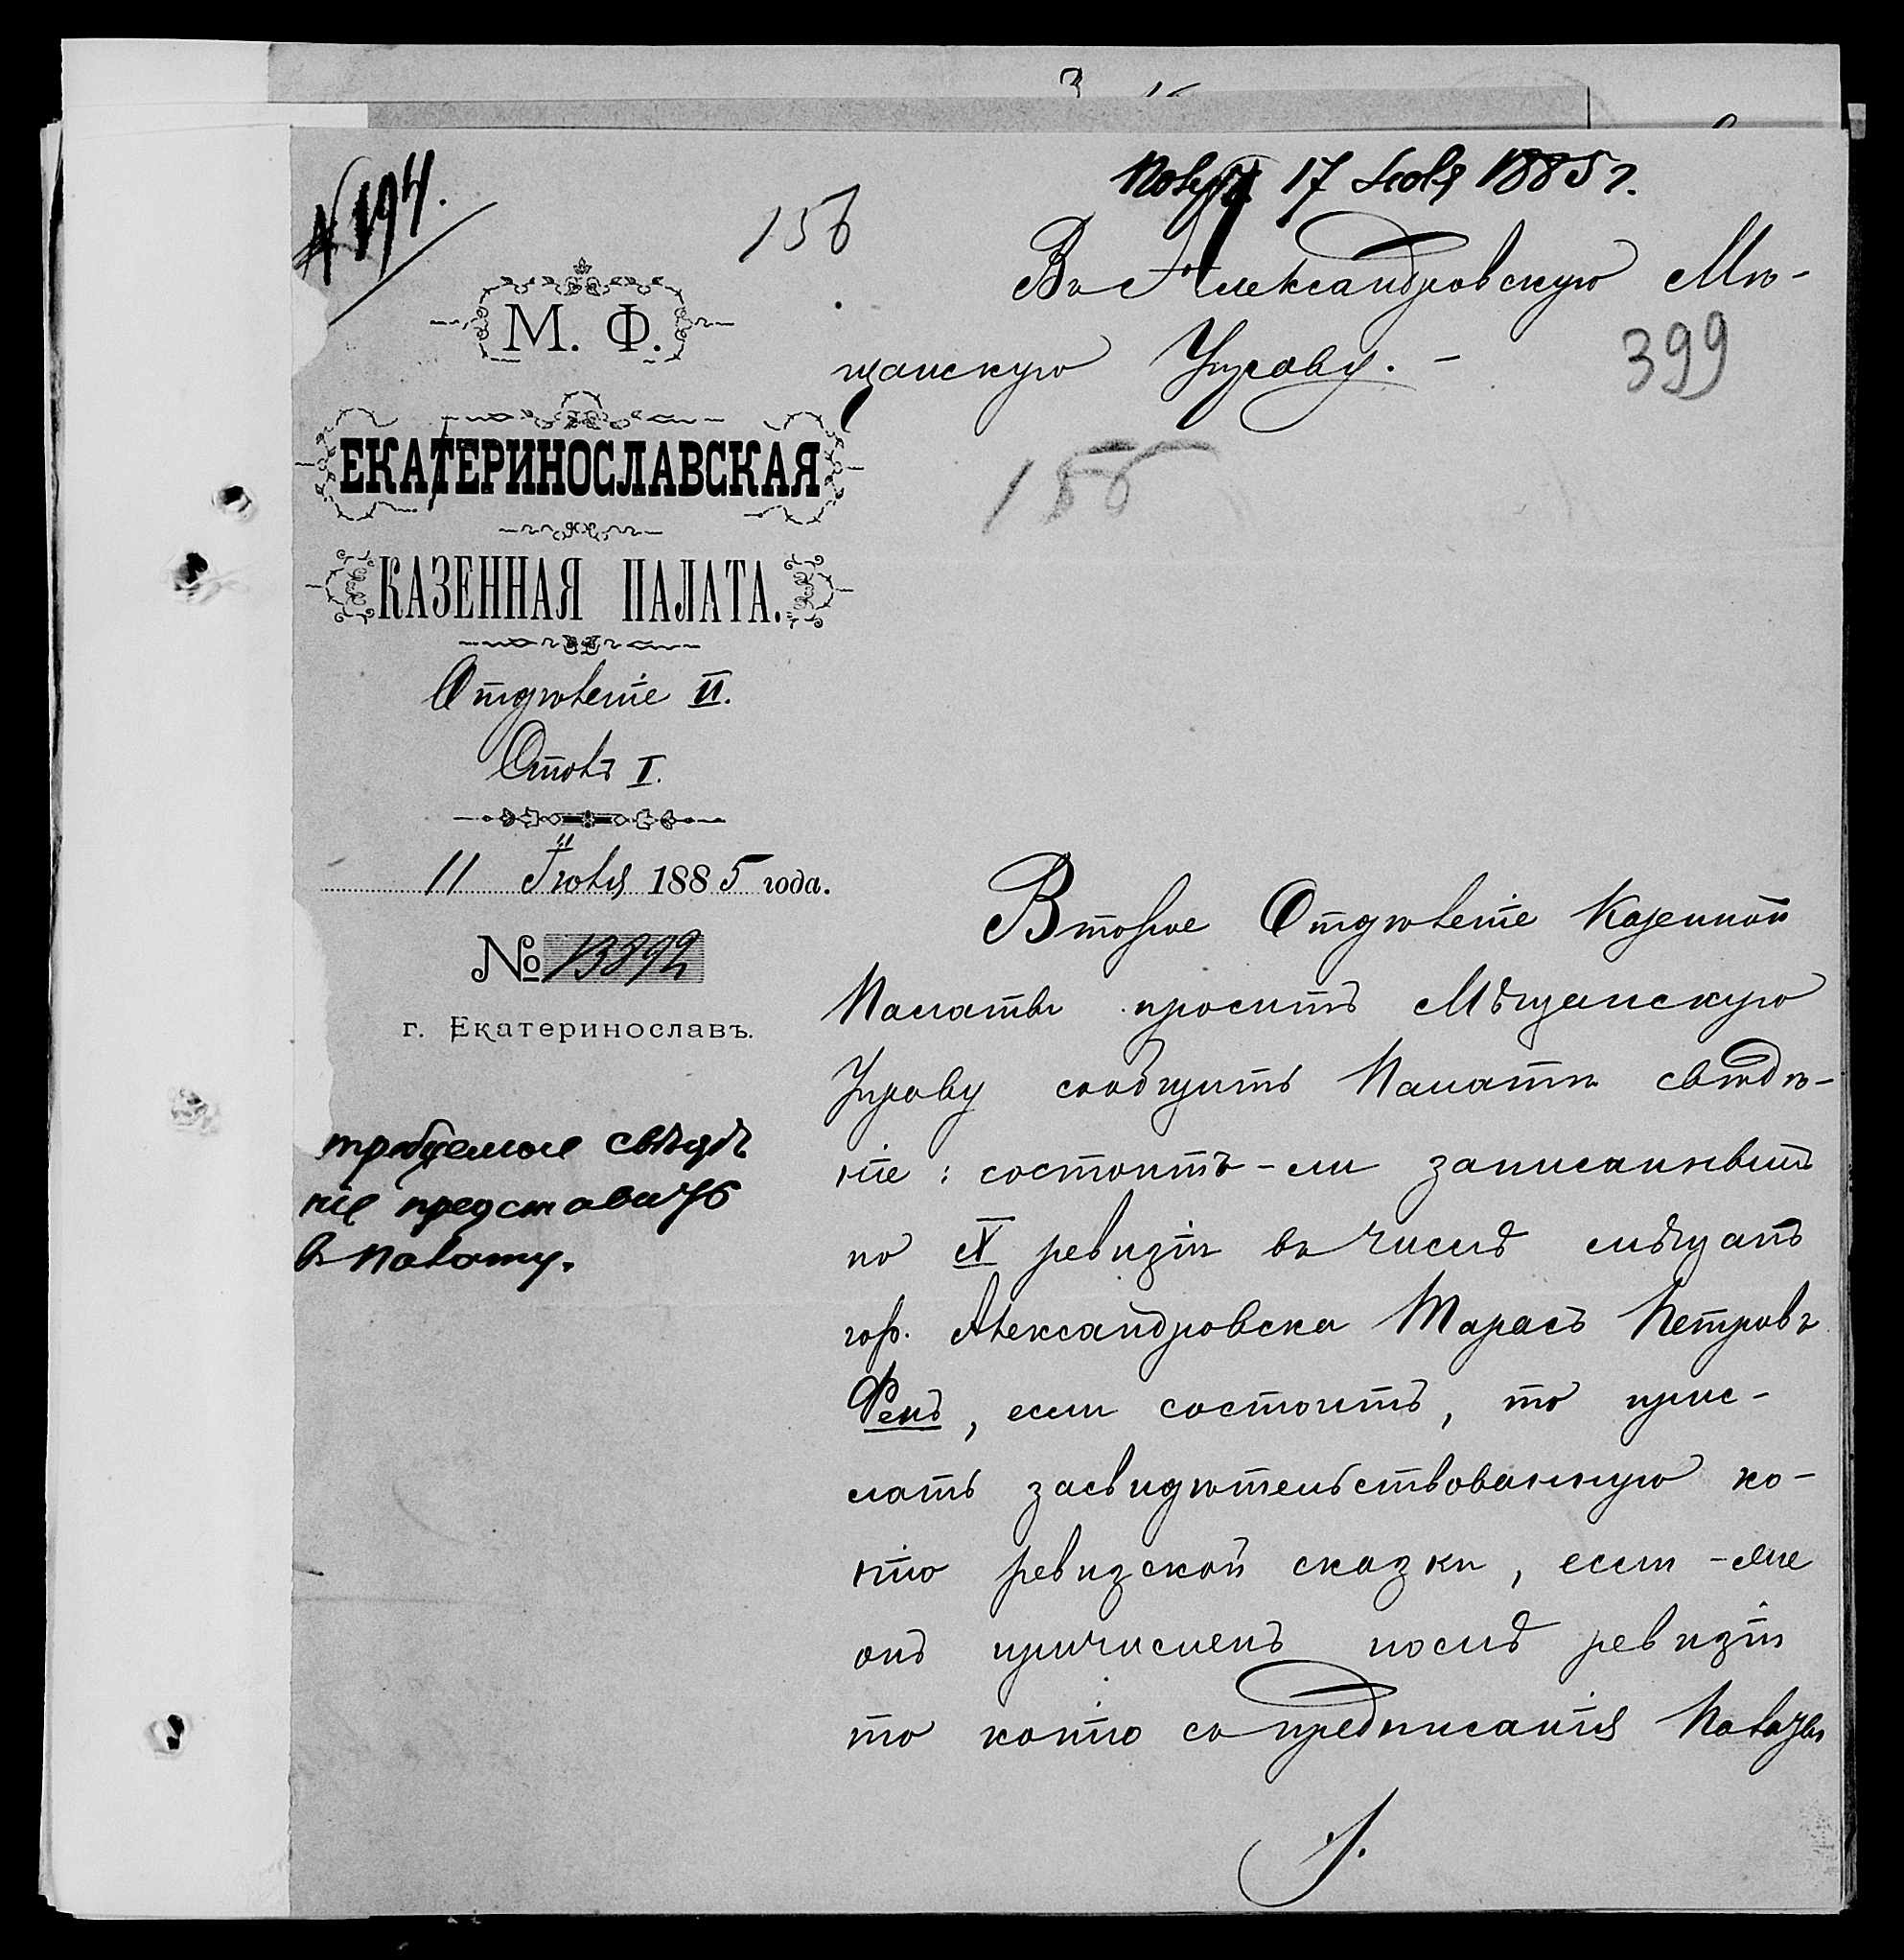 № 194.
Получ. 17 Іюля 1885 г.
156
Въ Александровскую Мѣ-
щанскую Управу. —
399
156
М. Ф.
ЕКАТЕРИНОСЛАВСКАЯ
КАЗЕННАЯ ПАЛАТА.
Отдѣленіе II.
Столъ I.
11 Іюля 1885 года.
№ 13892
г. Екатеринославъ.
требуемое свѣдѣ
ніе представить
в Палату.
Второе Отдѣленіе Казенной
Палаты проситъ Мѣщанскую
Управу сообщить Палатѣ свѣдѣ-
ніе: состоитъ-ли записаннымъ
по X ревизіи въ числѣ мѣщанъ
гор. Александровска Тарасъ Петровъ
Фенъ, если состоитъ, то прис-
лать засвидѣтельствованную ко-
пію ревизской сказки, если-же
онъ причисленъ послѣ ревизіи
то копію съ предписанія Палаты